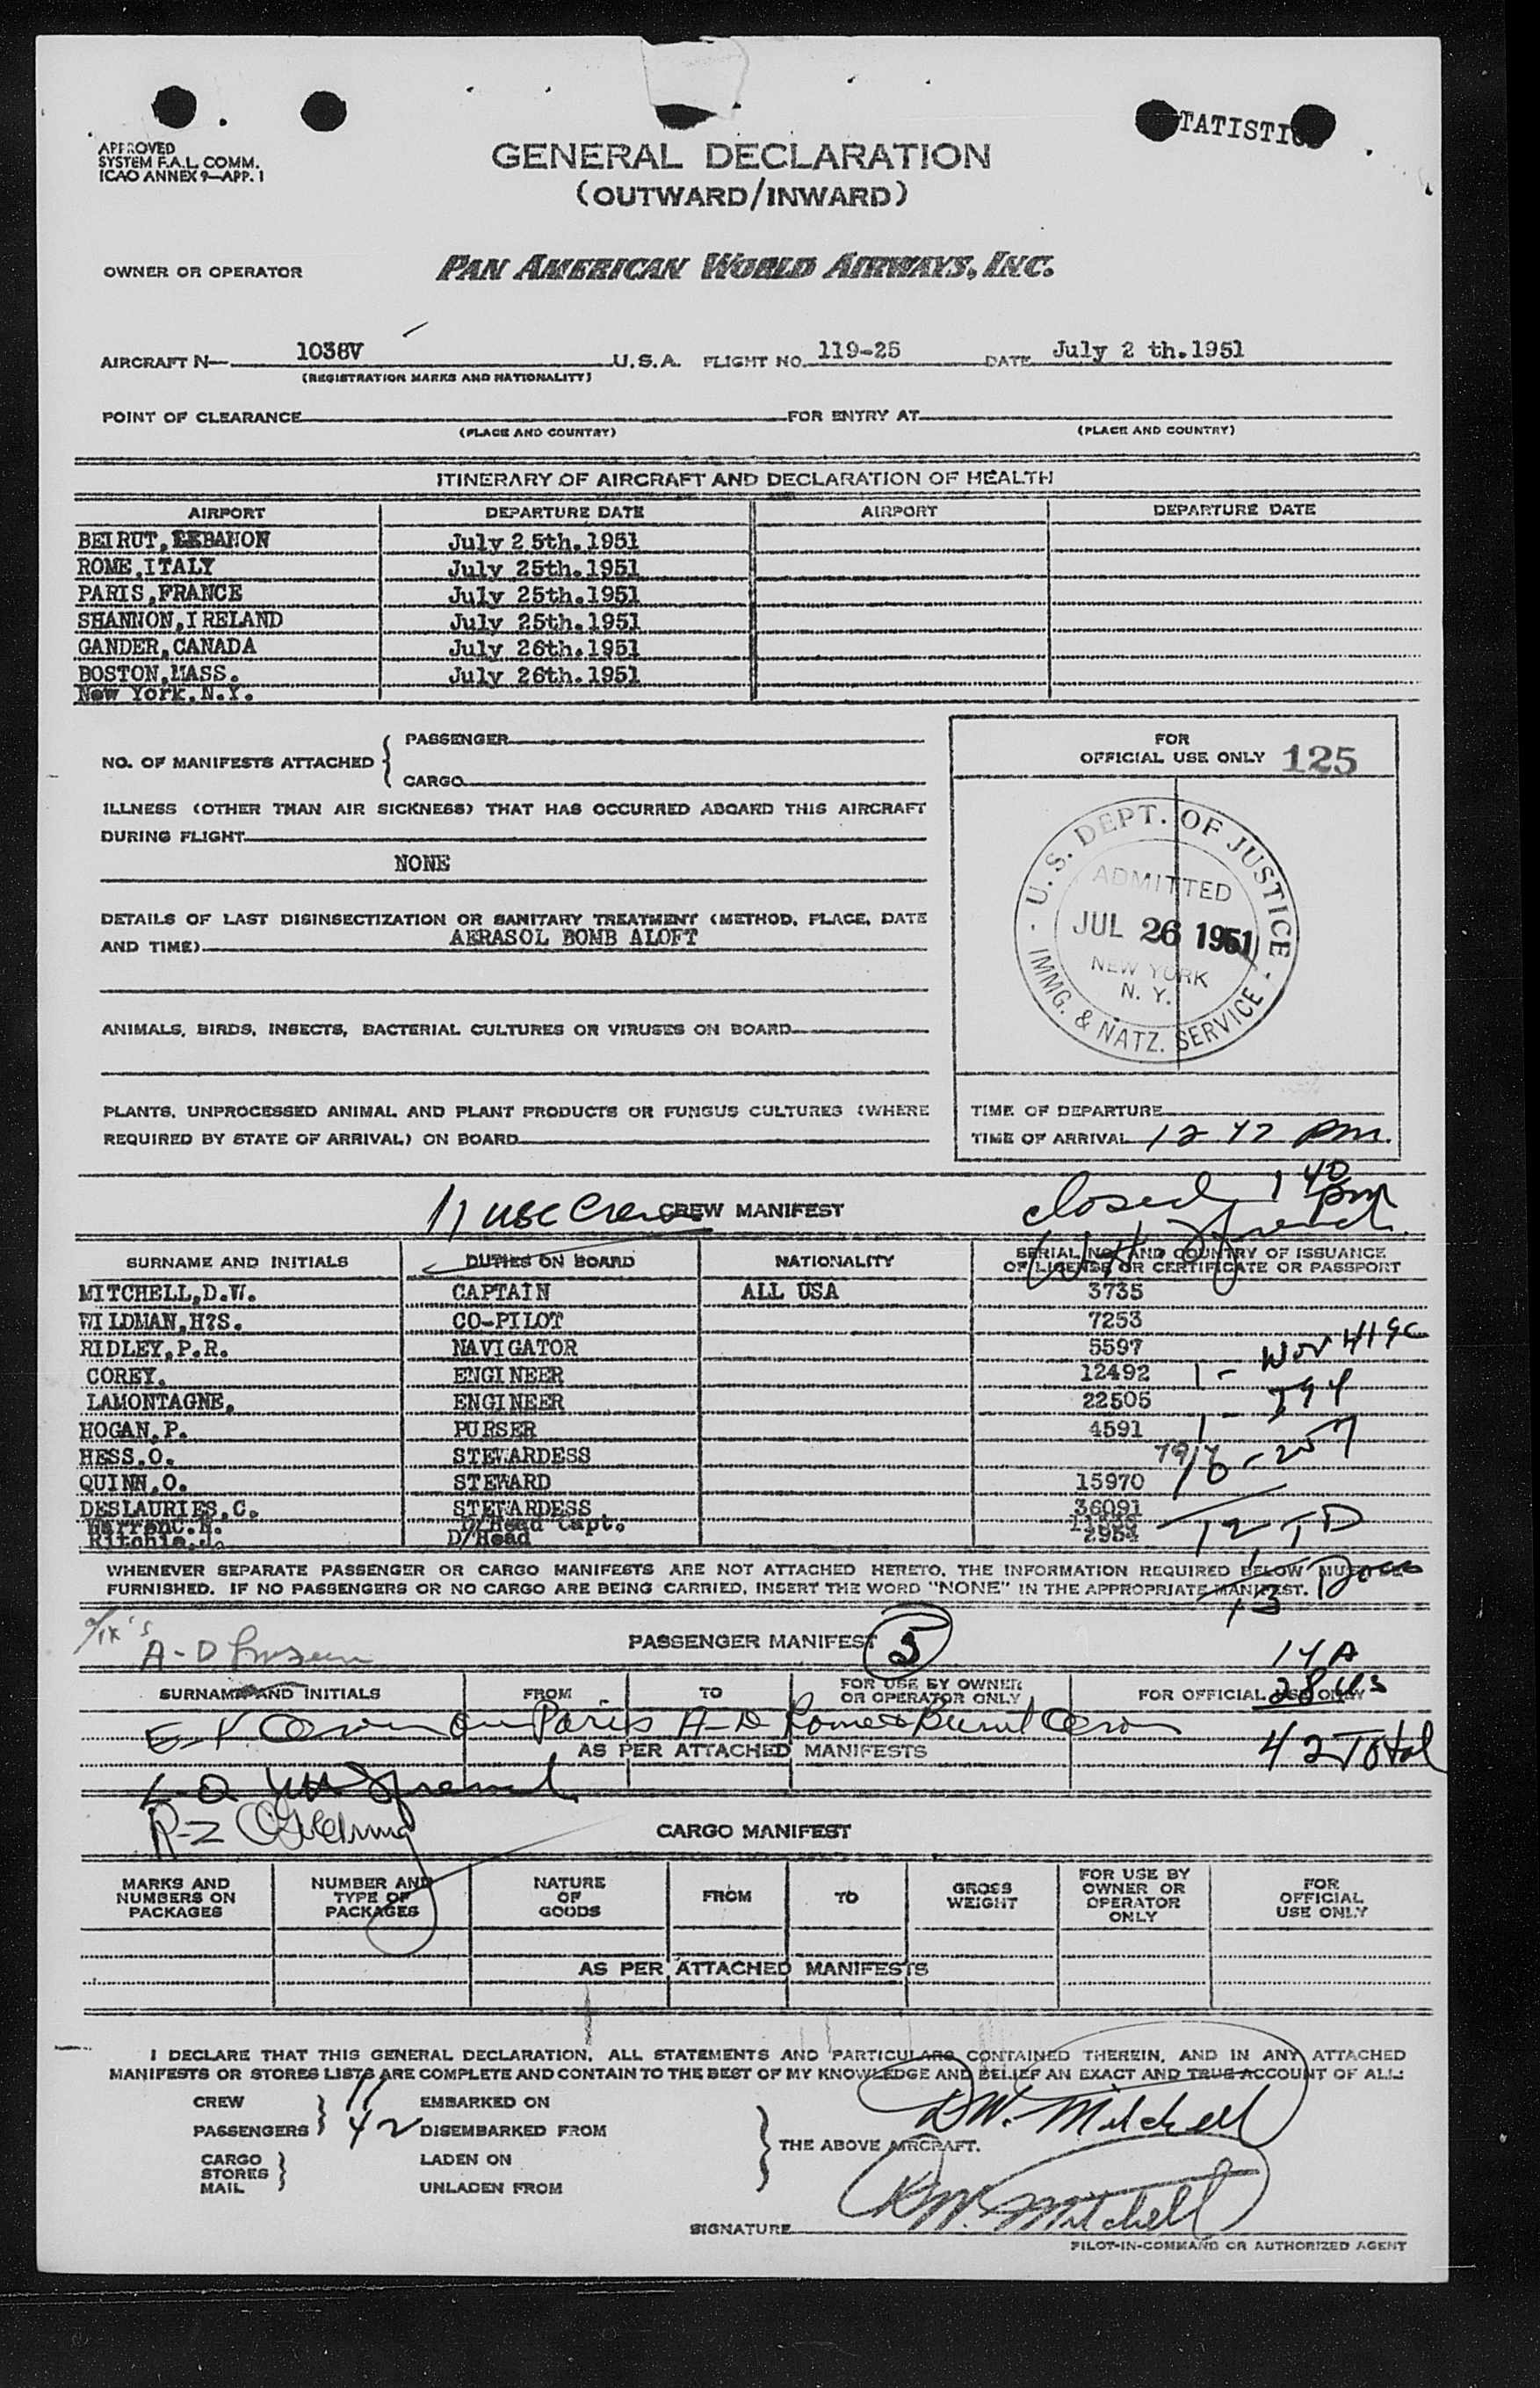 TATISTI
APPROVED
SYSTEM F.A.L. COMM.
ICAO ANNEX 9—APP. 1
GENERAL DECLARATION
(OUTWARD/INWARD)
OWNER OR OPERATOR PAN AMERICAN WORLD AIRWAYS, INC.
AIRCRAFT N— 1036V U.S.A. FLIGHT NO. 119-25 DATE July 2 th.1951
(REGISTRATION MARKS AND NATIONALITY)
POINT OF CLEARANCE FOR ENTRY AT
(PLACE AND COUNTRY) (PLACE AND COUNTRY)
ITINERARY OF AIRCRAFT AND DECLARATION OF HEALTH
AIRPORT DEPARTURE DATE AIRPORT DEPARTURE DATE
BEIRUT, LEBANON July 25th.1951
ROME,ITALY July 25th.1951
PARIS,FRANCE July 25th.1951
SHANNON,IRELAND July 25th.1951
GANDER,CANADA July 26th.1951
BOSTON,MASS. July 26th.1951
New York,N.Y.
NO. OF MANIFESTS ATTACHED { PASSENGER
CARGO
ILLNESS (OTHER THAN AIR SICKNESS) THAT HAS OCCURRED ABOARD THIS AIRCRAFT
DURING FLIGHT
NONE
DETAILS OF LAST DISINSECTIZATION OR SANITARY TREATMENT (METHOD, PLACE, DATE
AND TIME) AERASOL BOMB ALOFT
ANIMALS, BIRDS, INSECTS, BACTERIAL CULTURES OR VIRUSES ON BOARD
PLANTS, UNPROCESSED ANIMAL AND PLANT PRODUCTS OR FUNGUS CULTURES (WHERE
REQUIRED BY STATE OF ARRIVAL) ON BOARD
FOR
OFFICIAL USE ONLY 125
U. S. DEPT. OF JUSTICE
ADMITTED
JUL 26 1951
NEW YORK
N. Y.
IMMG. & NATZ. SERVICE
TIME OF DEPARTURE
TIME OF ARRIVAL 12 42 pm.
closed 1 40 pm
11 USC Crew CREW MANIFEST
SURNAME AND INITIALS DUTIES ON BOARD NATIONALITY SERIAL NO. AND COUNTRY OF ISSUANCE
OF LICENSE OR CERTIFICATE OR PASSPORT
MITCHELL,D.W. CAPTAIN ALL USA 3735
WILDMAN,H?S. CO-PILOT 7253
RIDLEY,P.R. NAVIGATOR 5597
COREY, ENGINEER 12492
LAMONTAGNE, ENGINEER 22505
HOGAN,P. PURSER 4591
HESS,O. STEWARDESS
QUINN,O. STEWARD 15970
DESLAURIES,C. STEWARDESS 36091
D/Head Capt.
Ritchie,J. D/Head 2954
WHENEVER SEPARATE PASSENGER OR CARGO MANIFESTS ARE NOT ATTACHED HERETO, THE INFORMATION REQUIRED BELOW MUST BE
FURNISHED. IF NO PASSENGERS OR NO CARGO ARE BEING CARRIED, INSERT THE WORD "NONE" IN THE APPROPRIATE MANIFEST.
PASSENGER MANIFEST 5
14 A
28 US
SURNAME AND INITIALS FROM TO FOR USE BY OWNER
OR OPERATOR ONLY FOR OFFICIAL USE ONLY
42 Total
AS PER ATTACHED MANIFESTS
CARGO MANIFEST
MARKS AND
NUMBERS ON
PACKAGES
NUMBER AND
TYPE OF
PACKAGES
NATURE
OF
GOODS
FROM TO
GROSS
WEIGHT
FOR USE BY
OWNER OR
OPERATOR
ONLY
FOR
OFFICIAL
USE ONLY
AS PER ATTACHED MANIFESTS
I DECLARE THAT THIS GENERAL DECLARATION, ALL STATEMENTS AND PARTICULARS CONTAINED THEREIN, AND IN ANY ATTACHED
MANIFESTS OR STORES LISTS ARE COMPLETE AND CONTAIN TO THE BEST OF MY KNOWLEDGE AND BELIEF AN EXACT AND TRUE ACCOUNT OF ALL:
CREW 11 EMBARKED ON
PASSENGERS 42 DISEMBARKED FROM
CARGO LADEN ON
STORES
MAIL UNLADEN FROM
THE ABOVE AIRCRAFT.
D.W. Mitchell
SIGNATURE D.W. Mitchell
PILOT-IN-COMMAND OR AUTHORIZED AGENT